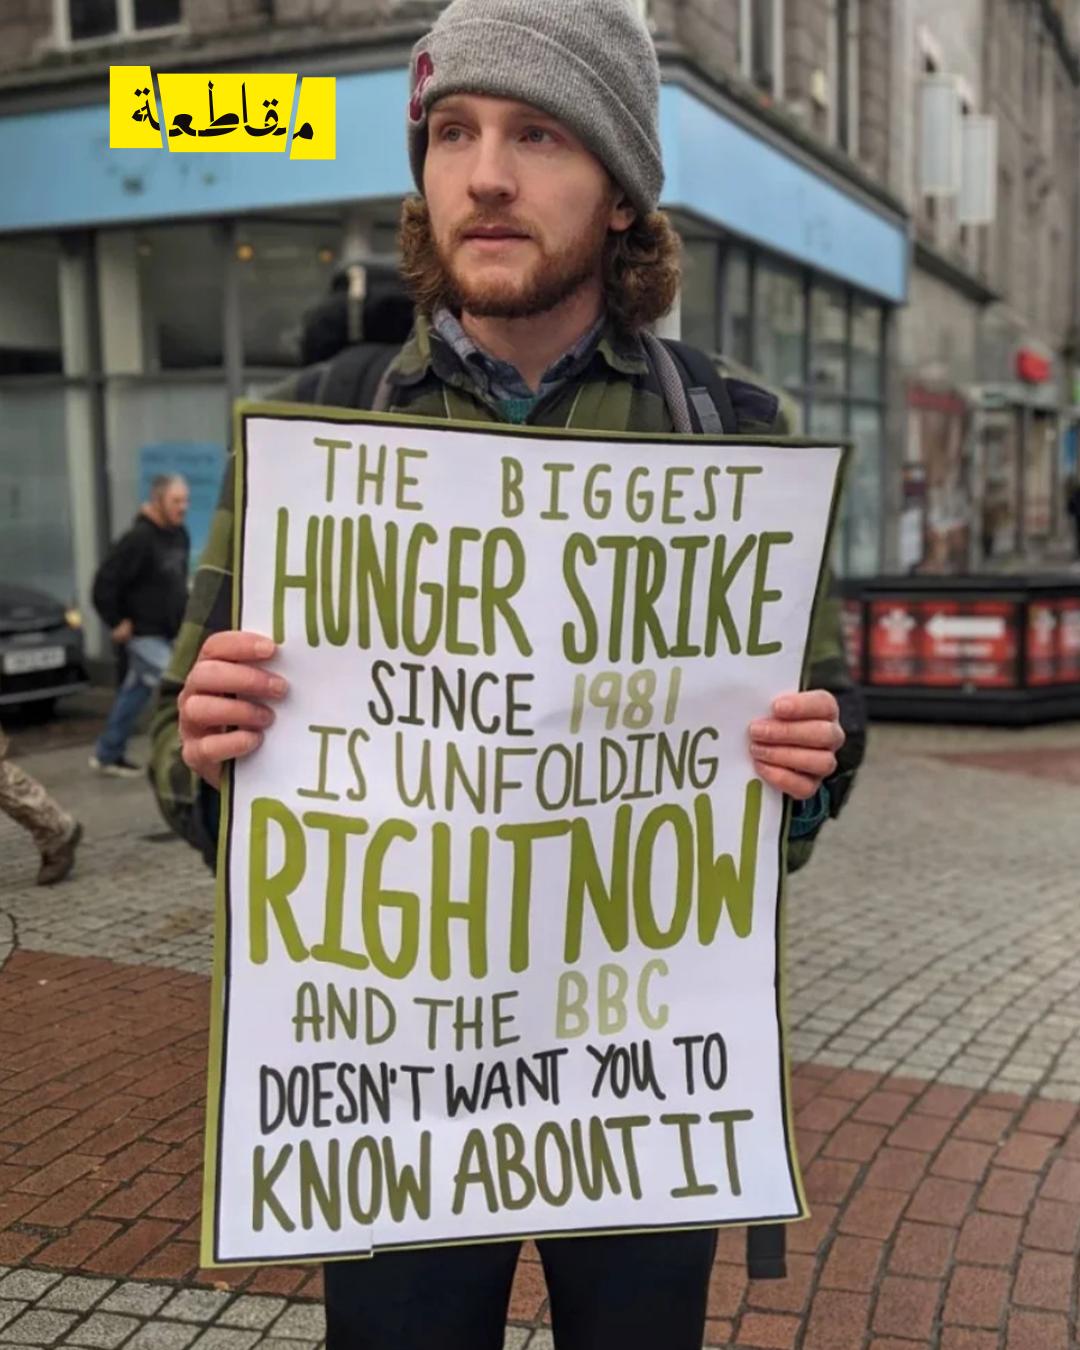 مقاطعة
THE BIGGEST
HUNGER STRIKE
SINCE 1981
IS UNFOLDING
RIGHT NOW
AND THE BBC
DOESN'T WANT YOU TO
KNOW ABOUT IT